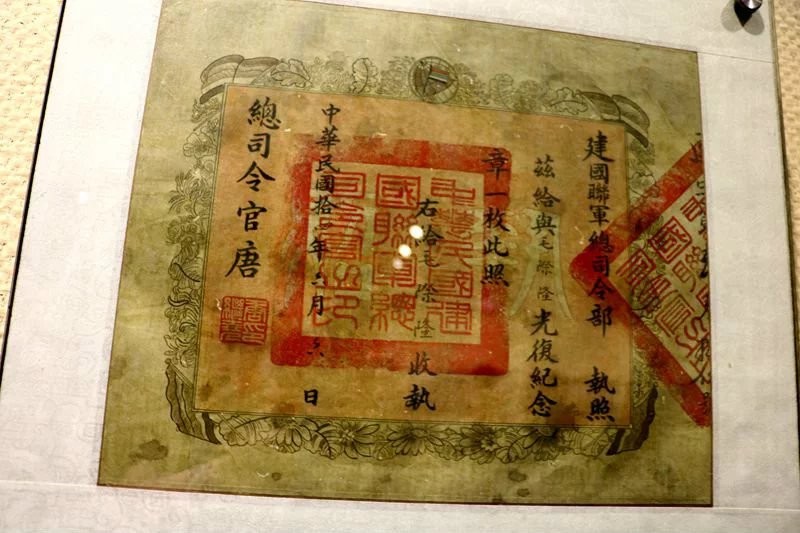 建國聯軍總司令部 執照
茲給與毛際隆光復紀念
章一枚此照
右給毛際隆收執
中華民國拾年月六日
總司令官唐
中華民國建
國聯軍總
司令官之印
唐印
繼堯